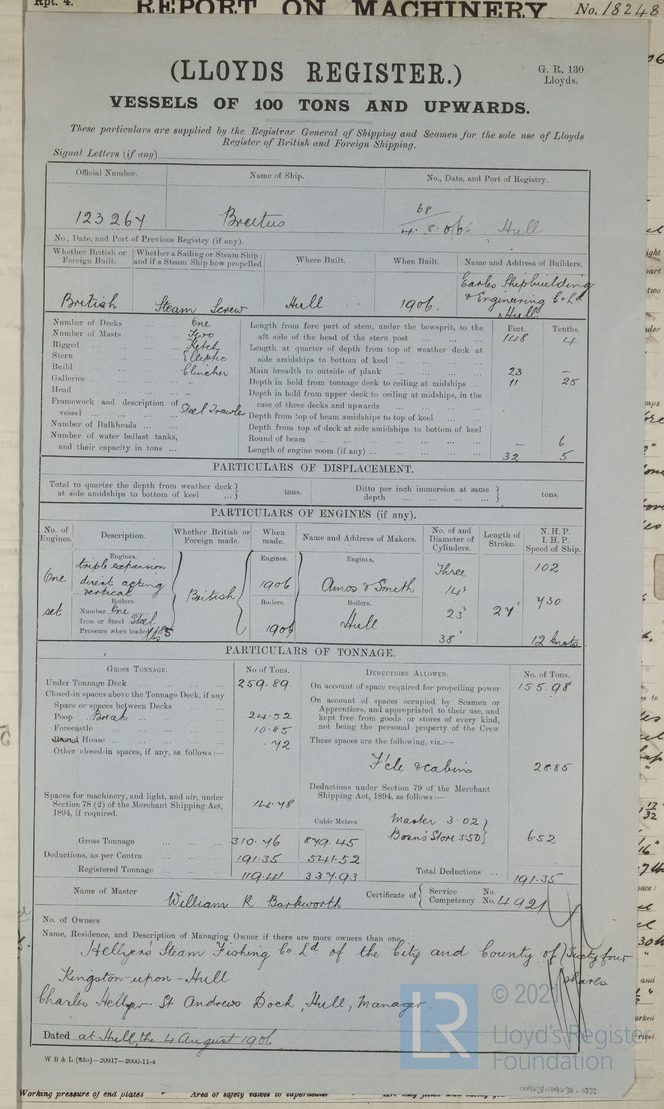 Rpt. 4.
REPORT ON MACHINERY
No. 18248
(LLOYDS REGISTER.)
G. R. 130
Lloyds.
VESSELS OF 100 TONS AND UPWARDS.
These particulars are supplied by the Registrar General of Shipping and Seamen for the sole use of Lloyds
Register of British and Foreign Shipping.
Signal Letters (if any)
Official Number. Name of Ship. No., Date, and Port of Registry.
123267 Brutus 68
4. 8. 0/06 Hull
No., Date, and Port of Previous Registry (if any).
Whether British or Foreign Built. Whether a Sailing or Steam Ship; and if a Steam Ship how propelled. Where Built. When Built. Name and Address of Builders.
British Steam Screw Hull 1906. Earles Shipbuilding
& Engineering Co Ld
Hull
Number of Decks One
Number of Masts Two
Rigged Ketch
Stern Elliptic
Build Clincher
Galleries -
Head -
Framework and description of vessel Steel Trawler
Number of Bulkheads
Number of water ballast tanks, and their capacity in tons
Feet. Tenths.
Length from fore part of stem, under the bowsprit, to the
aft side of the head of the stern post 148 4
Length at quarter of depth from top of weather deck at
side amidships to bottom of keel
Main breadth to outside of plank 23 —
Depth in hold from tonnage deck to ceiling at midships 11 25
Depth in hold from upper deck to ceiling at midships, in the
case of three decks and upwards
Depth from top of beam amidships to top of keel
Depth from top of deck at side amidships to bottom of keel
Round of beam — 6
Length of engine room (if any) 32 5
PARTICULARS OF DISPLACEMENT.
Total to quarter the depth from weather deck at side amidships to bottom of keel tons. Ditto per inch immersion at same depth tons.
PARTICULARS OF ENGINES (if any).
No. of Engines. Description. Whether British or Foreign made. When made. Name and Address of Makers. No. of and Diameter of Cylinders. Length of Stroke. N. H. P. I. H. P. Speed of Ship.
Engines. Engines. Engines.
One set triple expansion direct acting vertical British 1906 Amos & Smith Three 14" 23" 38" 27" 102
430
Boilers. Boilers. Boilers.
Number One 1906 Hull
Iron or Steel Steel
Pressure when loaded 185 lbs 12 knots
PARTICULARS OF TONNAGE.
GROSS TONNAGE. No. of Tons.
Under Tonnage Deck 259.89
Closed-in spaces above the Tonnage Deck, if any
Space or spaces between Decks
Poop Break 24.52
Forecastle 10.85
House .72
Other closed-in spaces, if any, as follows:—
Spaces for machinery, and light, and air, under
Section 78 (2) of the Merchant Shipping Act,
1894, if required. 14.48
Cubic Metres
Gross Tonnage 310.46 879.45
Deductions, as per Contra 191.35 541.52
Registered Tonnage 119.11 337.93
DEDUCTIONS ALLOWED. No. of Tons.
On account of space required for propelling power 155.98
On account of spaces occupied by Seamen or
Apprentices, and appropriated to their use, and
kept free from goods or stores of every kind,
not being the personal property of the Crew
These spaces are the following, viz.:—
F'cle & cabins 28.85
Deductions under Section 79 of the Merchant
Shipping Act, 1894, as follows:—
Master 3.02
Bosn's Store 3.50 6.52
Total Deductions 191.35
Name of Master William R Barkworth Certificate of Service Competency No. No. 4921
No. of Owners
Name, Residence, and Description of Managing Owner if there are more owners than one.
Hellyers Steam Fishing Co Ld of the City and County of Sixty four
Kingston-upon-Hull shares
Charles Hellyer. St Andrews Dock, Hull, Manager.
Dated at Hull, the 4 August 1906
W B & L (83o)—20917—2000-11-4
LR
© 2021
Lloyd's Register
Foundation
Working pressure of end plates
Area of safety valves to superheater